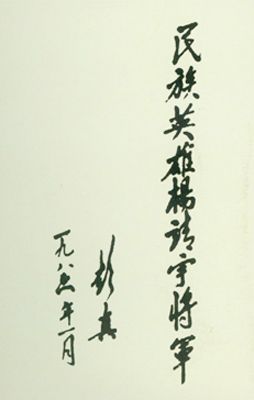 民族英雄楊靖宇将軍
彭真
一九八五年一月